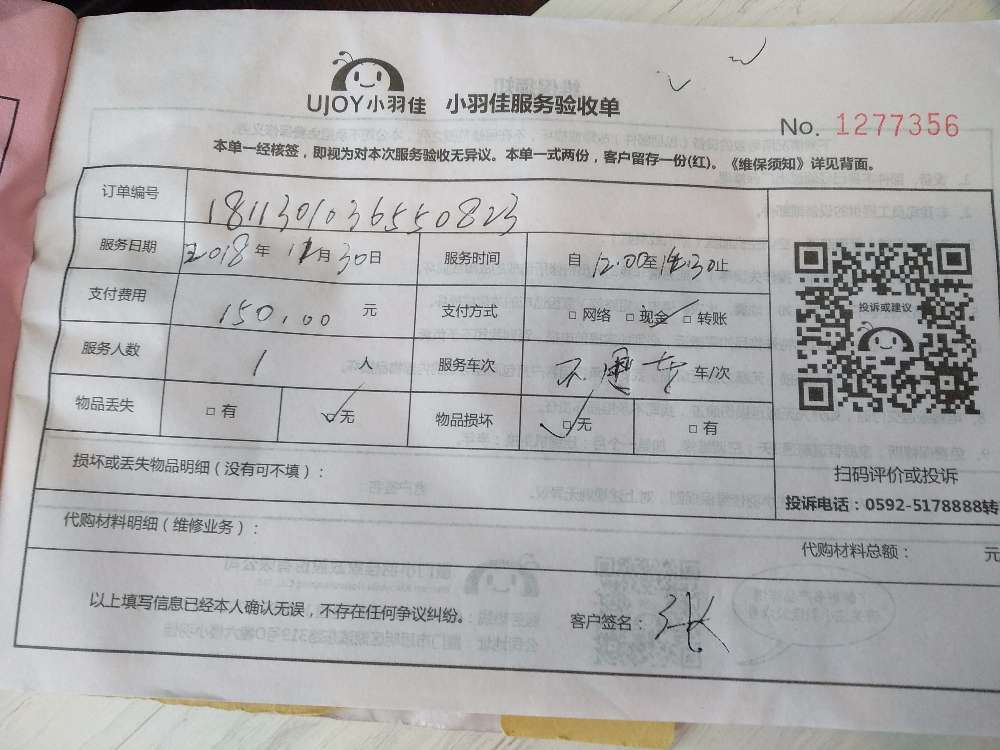 UJOY小羽佳 小羽佳服务验收单
No. 1277356
本单一经核签，即视为对本次服务验收无异议。本单一式两份，客户留存一份(红)。《维保须知》详见背面。
订单编号 1811301036550823
服务日期 2018年11月30日 服务时间 自12:00至14:30止
支付费用 150.00 元 支付方式 □网络 □现金 □转账
服务人数 1 人 服务车次 车/次
物品丢失 □有 □无 物品损坏 □无 □有
投诉或建议
扫码评价或投诉
投诉电话：0592-5178888转
损坏或丢失物品明细（没有可不填）：
代购材料明细（维修业务）：
代购材料总额： 元
以上填写信息已经本人确认无误，不存在任何争议纠纷。 客户签名：